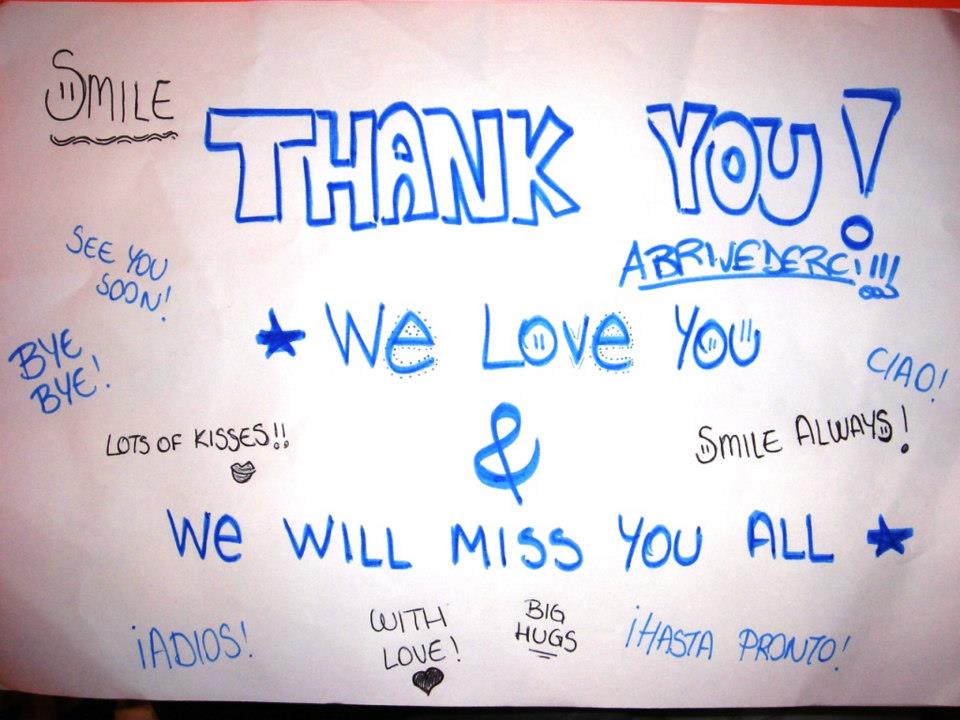 SMILE
THANK YOU!
SEE YOU
SOON!
ABRIVEDERC!!!!
BYE
BYE!
WE LOVE YOU
CIAO!
&
LOTS OF KISSES!!
SMILE ALWAYS!
WE WILL MISS YOU ALL
¡ADIOS!
WITH
LOVE!
BIG
HUGS
¡HASTA PRONTO!